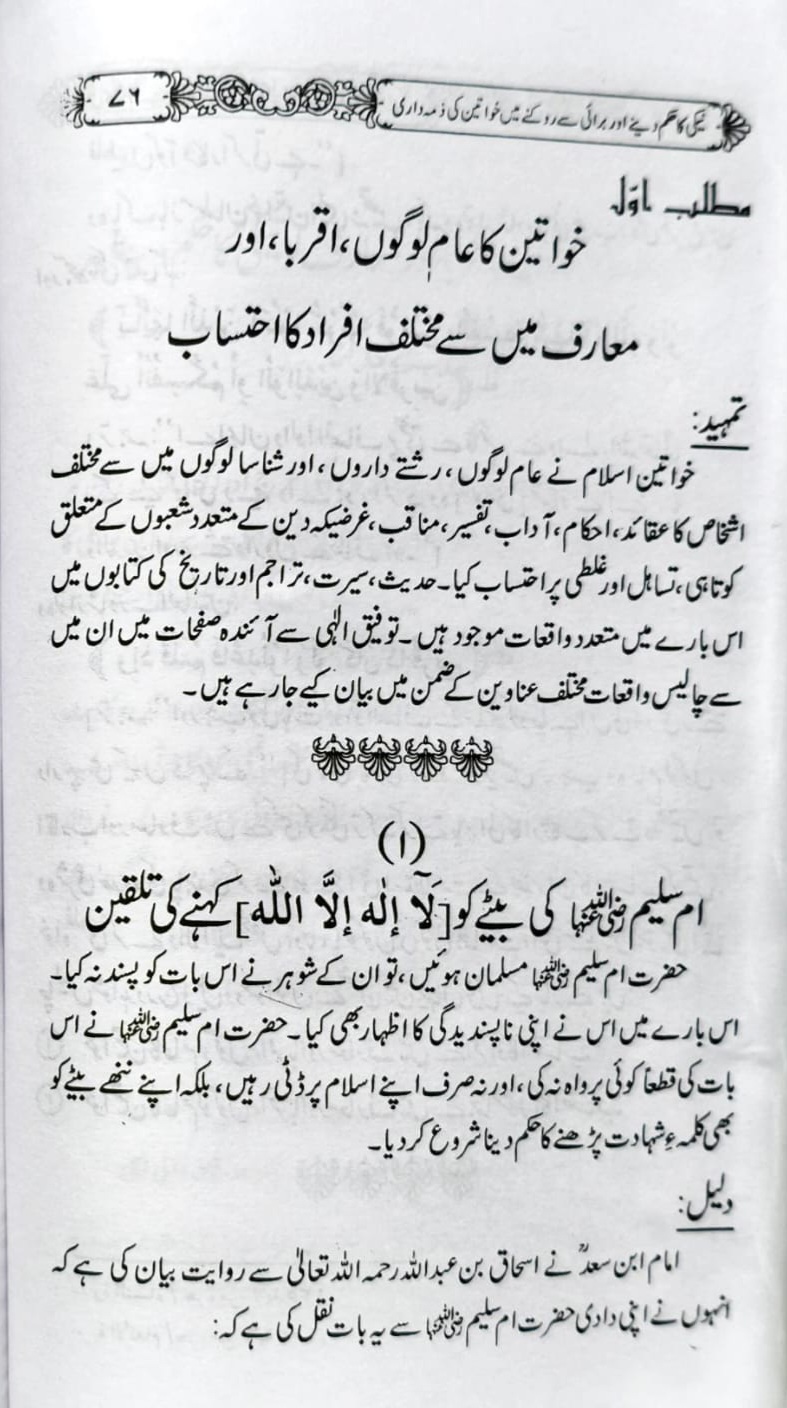 نیکی کا حکم دینے اور برائی سے روکنے میں خواتین کی ذمہ داری
۷۶
مطلب اوّل
خواتین کا عام لوگوں، اقربا، اور
معارف میں سے مختلف افراد کا احتساب
تمہید:
خواتین اسلام نے عام لوگوں، رشتے داروں، اور شناسا لوگوں میں سے مختلف
اشخاص کا عقائد، احکام، آداب، تفسیر، مناقب، غرضیکہ دین کے متعدد شعبوں کے متعلق
کوتاہی، تساہل اور غلطی پر احتساب کیا۔ حدیث، سیرت، تراجم اور تاریخ کی کتابوں میں
اس بارے میں متعدد واقعات موجود ہیں۔ توفیق الٰہی سے آئندہ صفحات میں ان میں
سے چالیس واقعات مختلف عناوین کے ضمن میں بیان کیے جا رہے ہیں۔
(۱)
ام سلیم رضی اللہ عنہا کی بیٹے کو [لَآ إلٰه إلَّا اللّٰه] کہنے کی تلقین
حضرت ام سلیم رضی اللہ عنہا مسلمان ہوئیں، تو ان کے شوہر نے اس بات کو پسند نہ کیا۔
اس بارے میں اس نے اپنی ناپسندیدگی کا اظہار بھی کیا۔ حضرت ام سلیم رضی اللہ عنہا نے اس
بات کی قطعاً کوئی پرواہ نہ کی، اور نہ صرف اپنے اسلام پر ڈٹی رہیں، بلکہ اپنے ننھے بیٹے کو
بھی کلمہءِ شہادت پڑھنے کا حکم دینا شروع کر دیا۔
دلیل:
امام ابن سعدؒ نے اسحاق بن عبداللہ رحمہ اللہ تعالیٰ سے روایت بیان کی ہے کہ
انہوں نے اپنی دادی حضرت ام سلیم رضی اللہ عنہا سے یہ بات نقل کی ہے کہ: